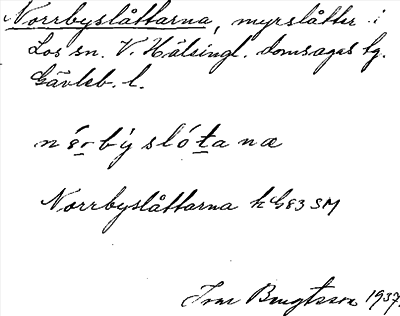 Norrbyslåttarna, myrslåtter i
Los sn. V. Hälsingl. domsagas tg.
Gävleb. l.
Norrbyslåttarna k G83 SM
Ivar Bengtsson 1937.